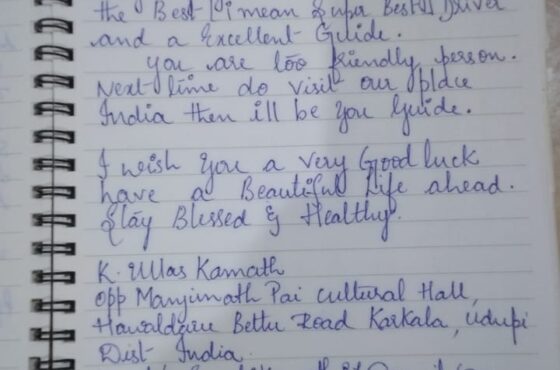 the Best I mean Supa Best Driver
and a Excellent Guide.
you are too friendly person.
Next time do visit our place
India then ill be you Guide.
I wish you a very Good luck
have a Beautiful Life ahead.
Stay Blessed & Healthy.
K. Ullas Kamath
opp Manjunath Pai cultural Hall,
Bettu Road Karkala, Udupi
Dist India.